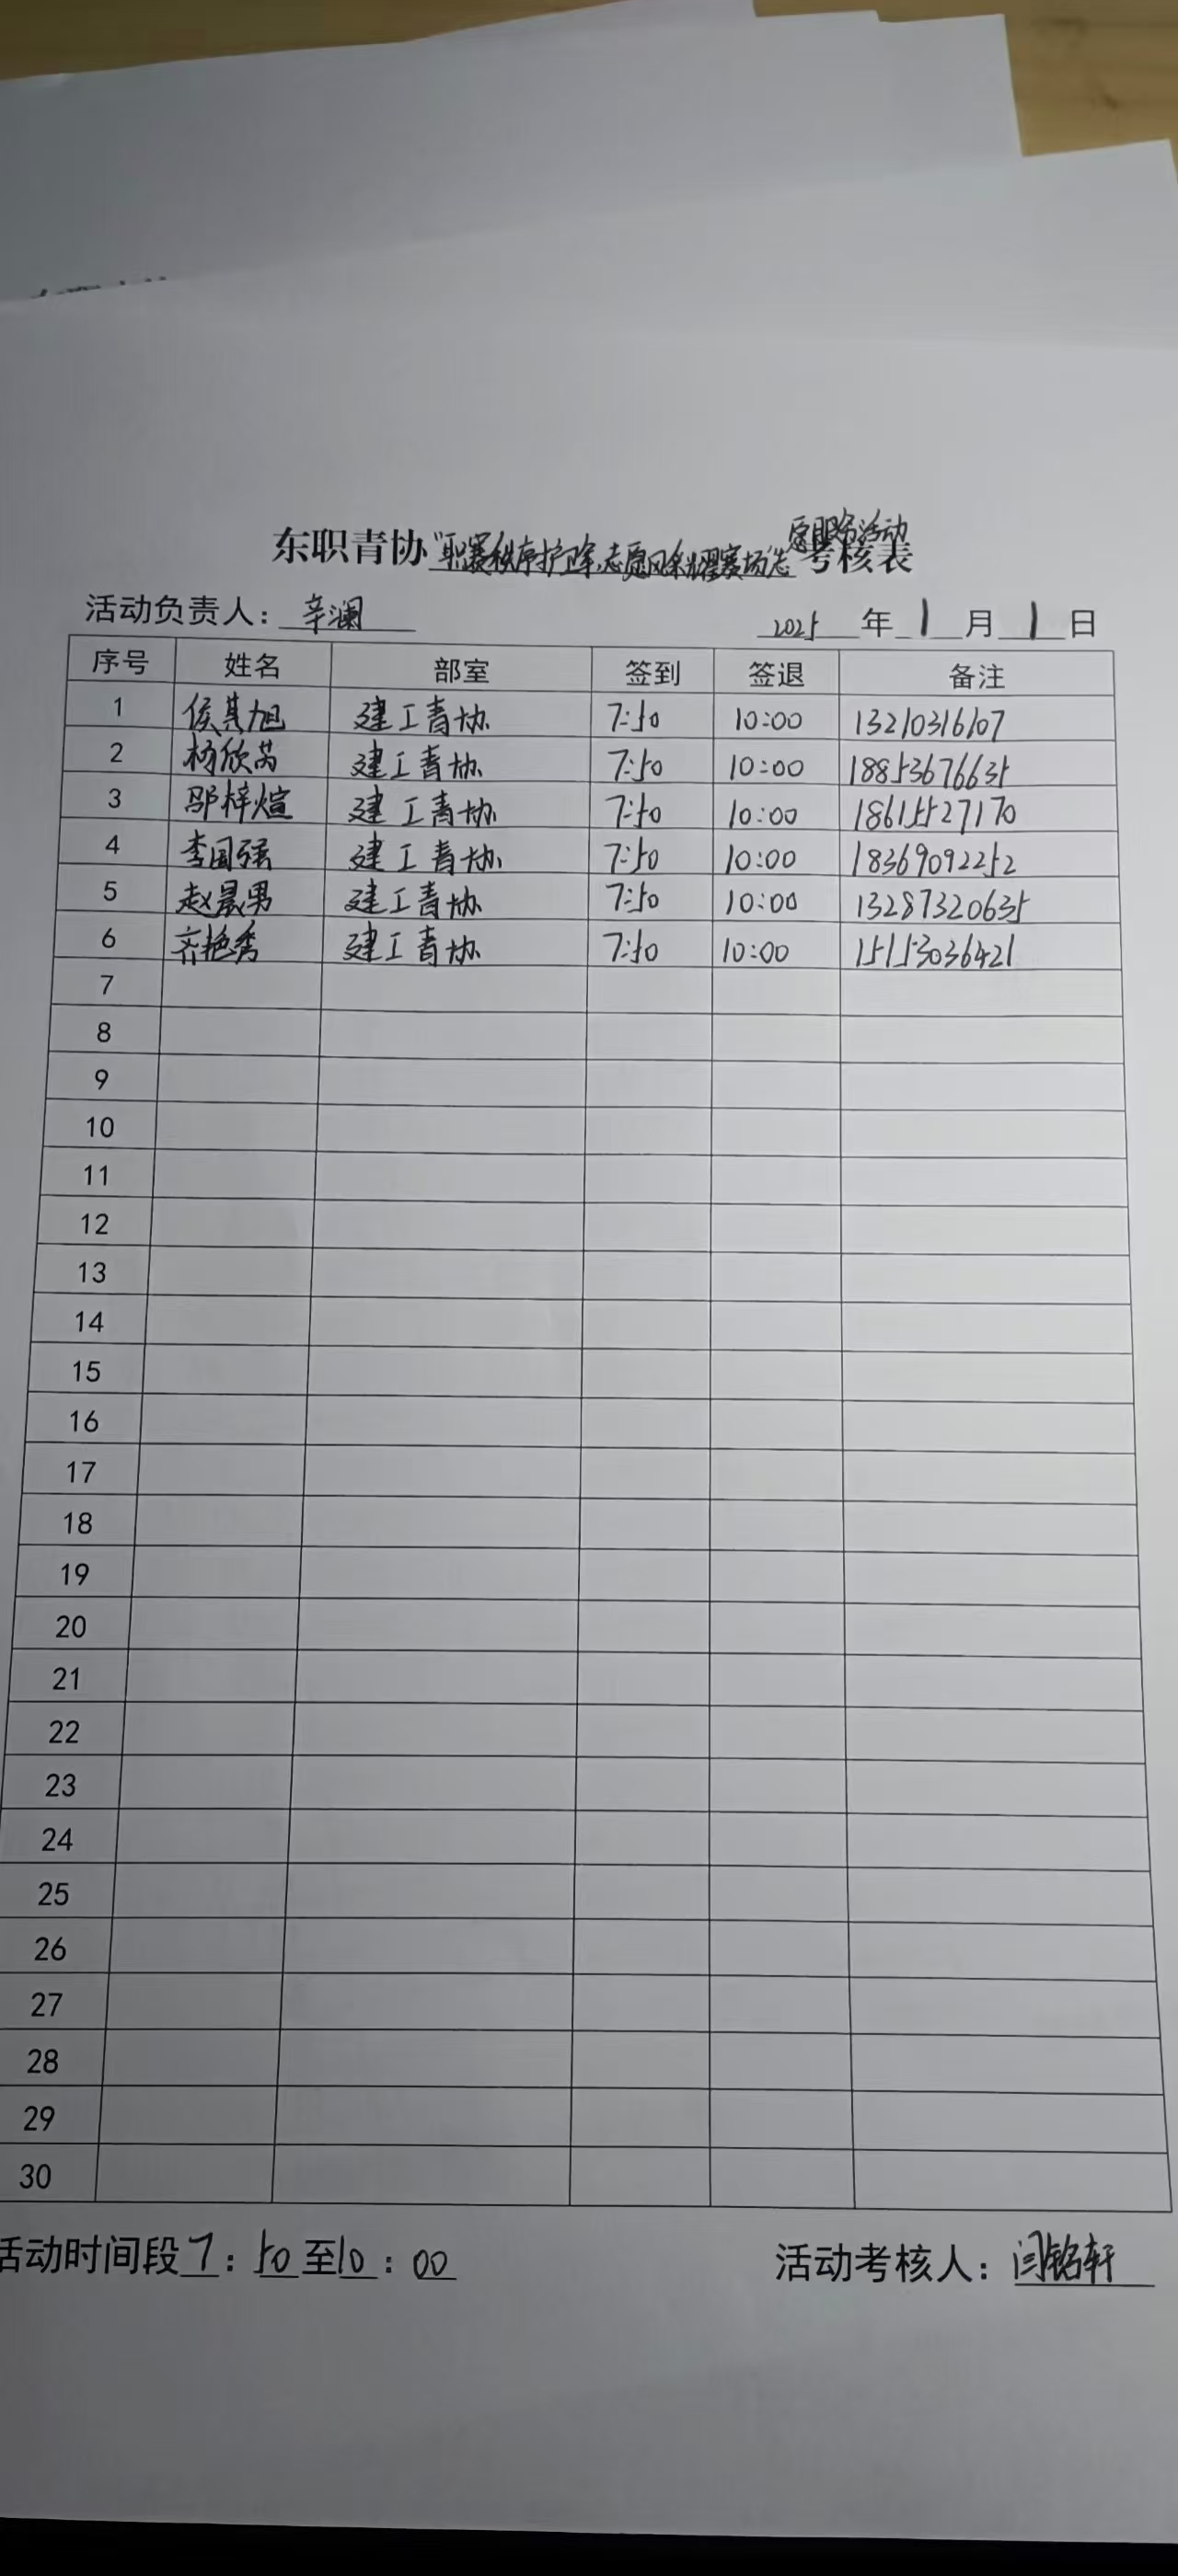 愿服务活动
东职青协“职赛秩序护卫队,志愿风采耀赛场”志考核表
活动负责人: 辛澜 2025年1月1日
序号 姓名 部室 签到 签退 备注
1 侯其旭 建工青协 7:50 10:00 13210316107
2 杨欣芮 建工青协 7:50 10:00 18853676635
3 邬梓煊 建工青协 7:50 10:00 18615527170
4 李国强 建工青协 7:50 10:00 18369092252
5 赵晨男 建工青协 7:50 10:00 13287320635
6 齐艳秀 建工青协 7:50 10:00 15153036421
7
8
9
10
11
12
13
14
15
16
17
18
19
20
21
22
23
24
25
26
27
28
29
30
活动时间段 7:50至10:00 活动考核人: 闫铭轩